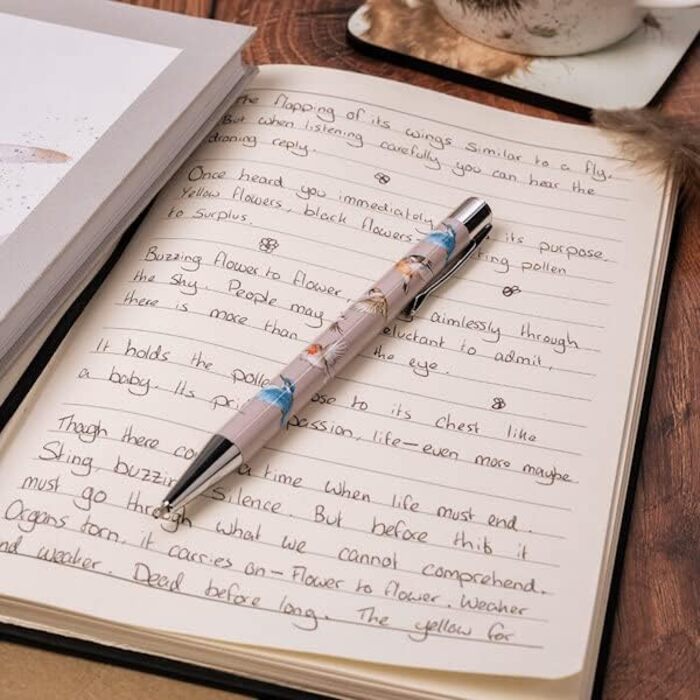 The flapping of its wings similar to a fly.
But when listening carefully you can hear the
droning reply.
Once heard you immediately its purpose.
Yellow flowers, black flowers ring pollen
to surplus.
Buzzing flower to flower, aimlessly through
the sky. People may eluctant to admit,
there is more than the eye.
It holds the polle ose to its chest like
a baby. Its pri passion, life—even more maybe.
Though there co a time when life must end.
Sting, buzzin silence. But before this it
must go through what we cannot comprehend.
Organs torn, it carries on — Flower to flower. Weaker
nd weaker. Dead before long. The yellow for